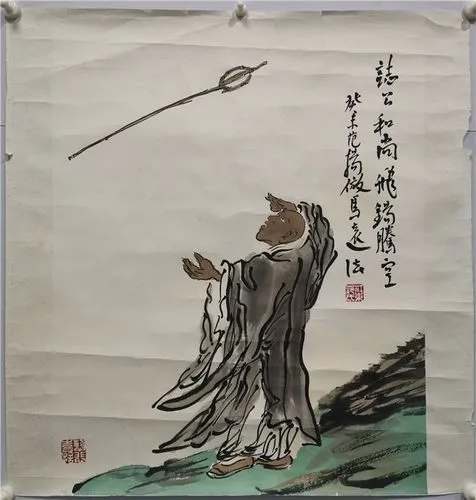 誌公和尚飛錫騰空
癸未范揚倣馬遠法